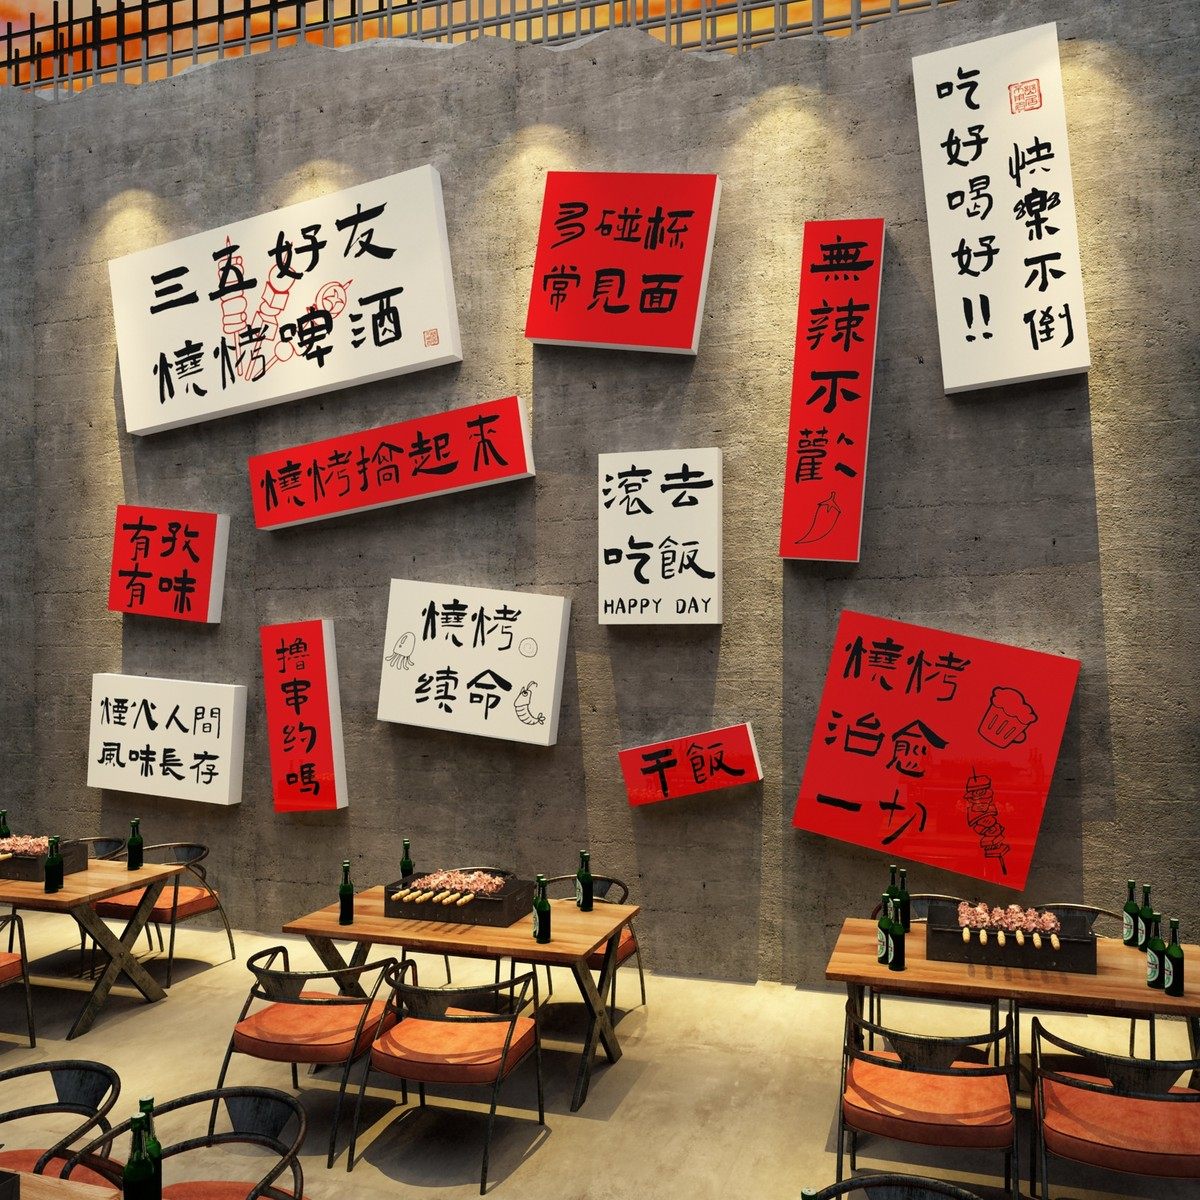 三五好友
燒烤啤酒
多碰杯
常見面
無辣不歡
吃好喝好!!
快樂不倒
燒烤搞起來
滾去
吃飯
HAPPY DAY
有孜
有味
燒烤
续命
撸串约嗎
煙火人間
風味長存
干飯
燒烤
治愈
一切